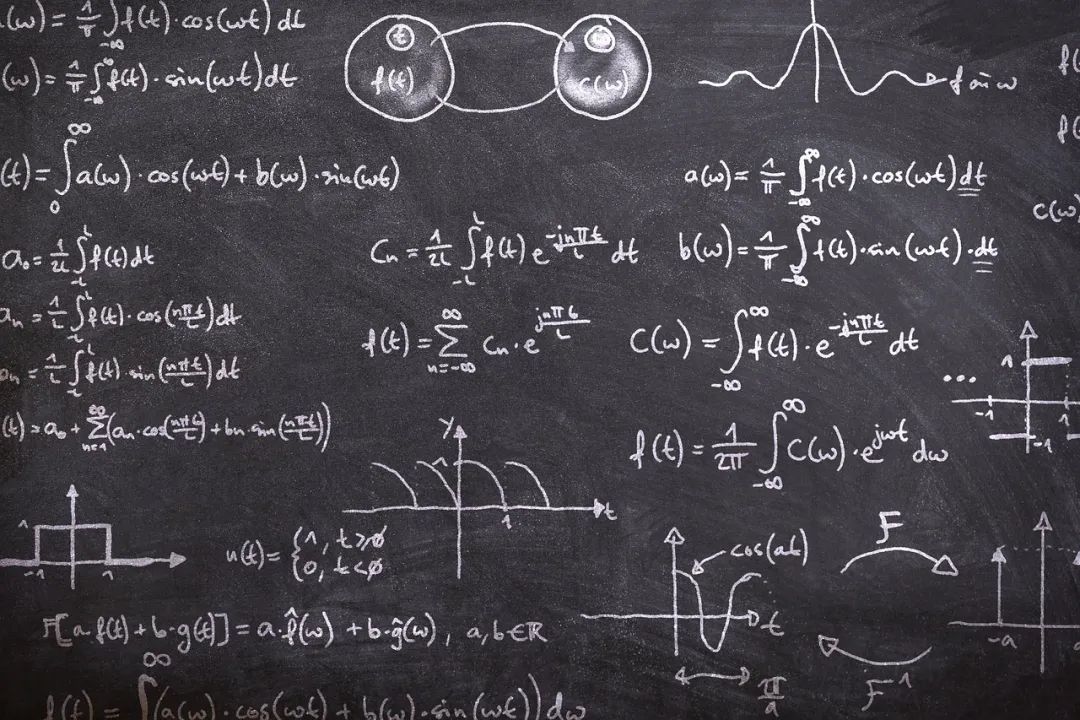 (ω) = 1/π ∫_{-∞} f(t)·cos(ωt) dt
(ω) = 1/π ∫_{-∞}^{∞} f(t)·sin(ωt) dt
t
f(t)
ω
c(ω)
f
ω
f(
f(
(t) = ∫_0^∞ a(ω)·cos(ωt) + b(ω)·sin(ωt)
a(ω) = 1/π ∫_{-∞}^{∞} f(t)·cos(ωt) dt
c(ω)
a₀ = 1/2L ∫_{-L}^{L} f(t) dt
Cₙ = 1/2L ∫_{-L}^{L} f(t) e^{-jnπt/L} dt
b(ω) = 1/π ∫_{-∞}^{∞} f(t)·sin(ωt)·dt
aₙ = 1/L ∫_{-L}^{L} f(t)·cos(nπt/L) dt
f(t) = Σ_{n=-∞}^{∞} Cₙ·e^{jnπt/L}
C(ω) = ∫_{-∞}^{∞} f(t)·e^{-jnπt/L} dt
bₙ = 1/L ∫_{-L}^{L} f(t)·sin(nπt/L) dt
...
1
-1
1
-1
(t) = a₀ + Σ_{n=1}^{∞} (aₙ·cos(nπt/L) + bₙ·sin(nπt/L))
f(t) = 1/2π ∫_{-∞}^{∞} C(ω)·e^{jωt} dω
y
1
1
t
1
-1
1
u(t) = {1, t≥0
0, t<0
cos(at)
t
π/a
F
F⁻¹
-a
a
F[a·f(t) + b·g(t)] = a·f̂(ω) + b·ĝ(ω), a,b∈ℝ
f(t) = ∫^∞ (a(ω)·cos(ωt) + b(ω)·sin(ωt)) dω